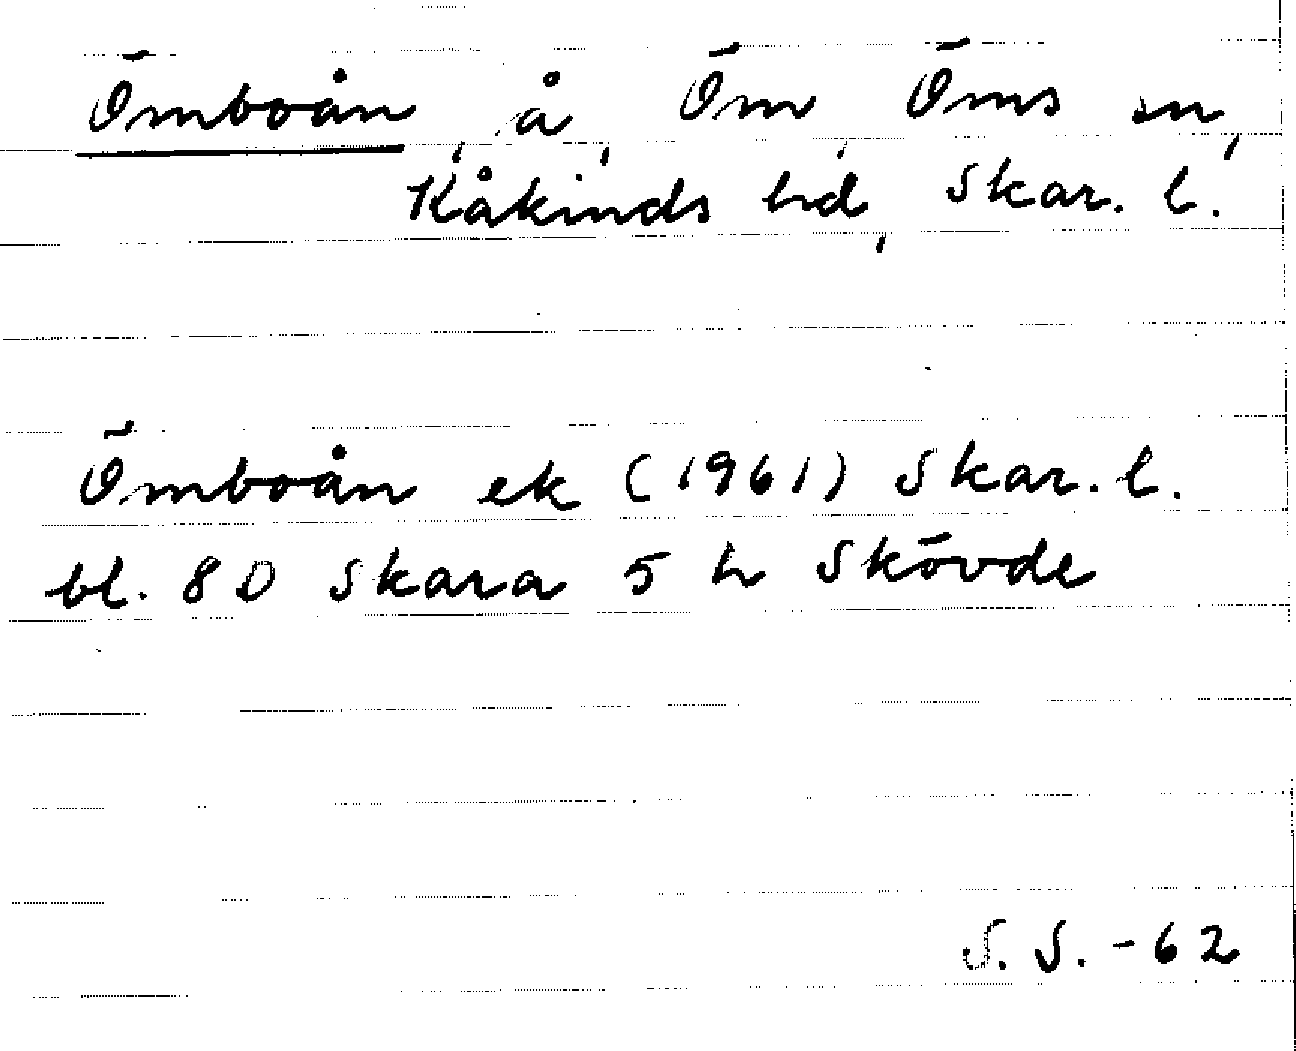 Ömboån, å, Öm, Öms sn,
Kåkinds hd, Skar. l.
Ömboån ek (1961) Skar. l.
bl. 80 Skara 5 h Skövde
S. S. -62